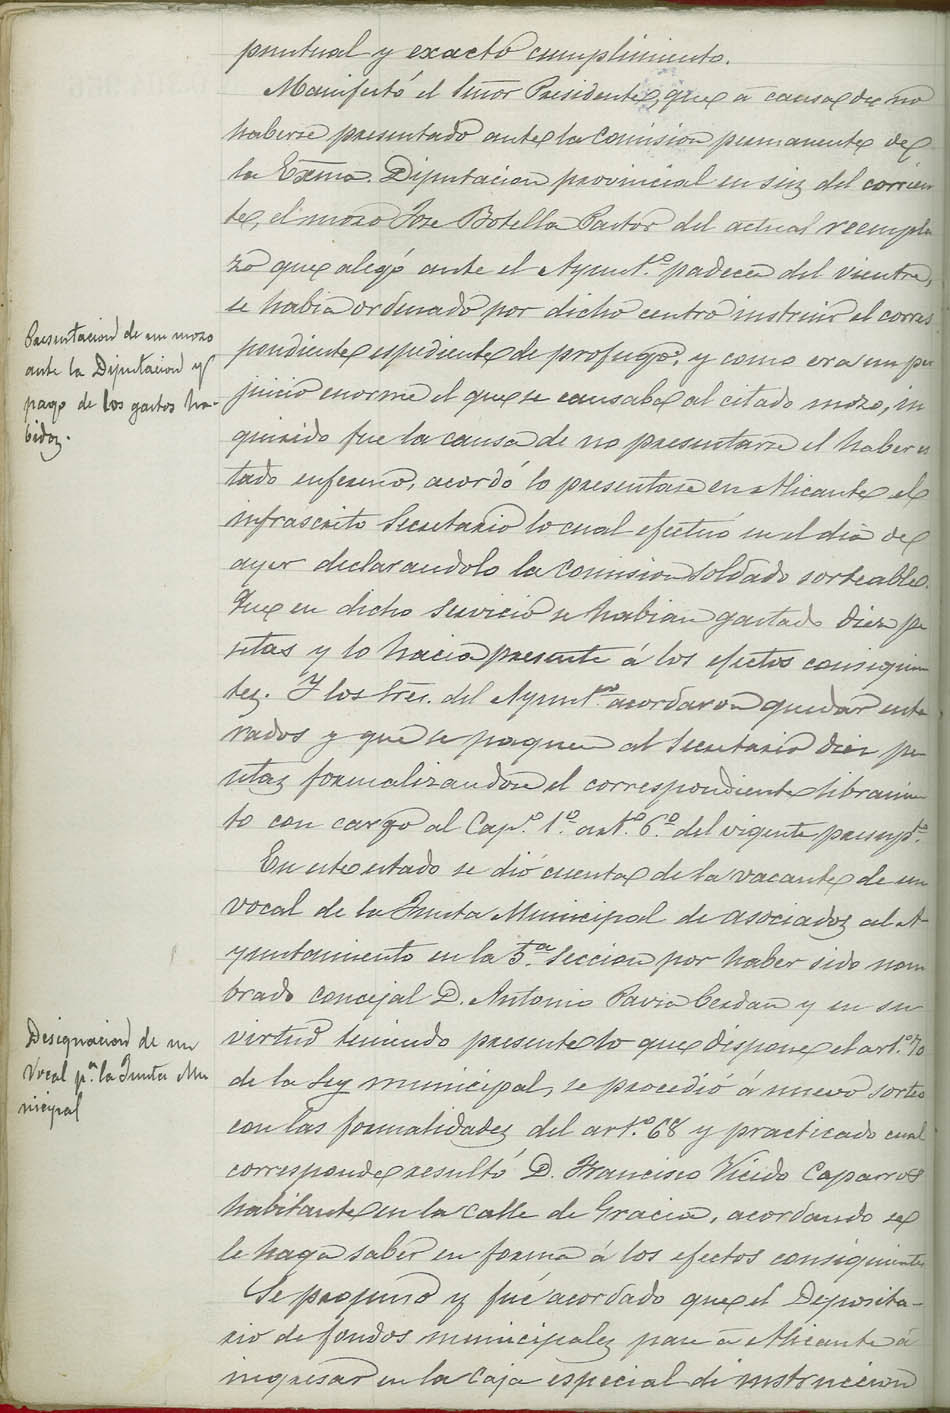 puntual y exacto cumplimiento.
Manifestó el Señor Presidente, que á causa de no
haberse presentado ante la Comision permanente de
la Exma. Diputacion provincial en seis del corrien
te, el mozo Jose Botella Pastor del actual reempla
zo que alegó ante el Ayunt.º padecer del vientre,
se habia ordenado por dicho centro instruir el corres
pondiente espediente de profugo, y como era un per
juicio enorme el que se causaba al citado mozo, in
quirido fue la causa de no presentarse el haber es
tado enfermo, acordó lo presentase en Alicante el
infrascrito Secretario lo cual efectuó en el dia de
ayer declarandolo la Comision soldado sorteable.
Que en dicho servicio se habian gastado diez pe
setas y lo hacia presente á los efectos consiguien
tes. Y los Sres. del Ayunt.to acordaron quedar ente
rados y que se paguen al Secretario diez pe
setas formalizandose el correspondiente libramien
to con cargo al Cap.º 1.º art.º 6.º del vigente presup.to
En este estado se dió cuenta de la vacante de un
vocal de la Junta Municipal de asociados al A
yuntamiento en la 5.ª Seccion por haber sido nom
brado concejal D. Antonio Pavia Cerdan y en su
virtud teniendo presente lo que dispone el art.º 70
de la Ley municipal, se procedió á nuevo sorteo
con las formalidades del art.º 68 y practicado cual
corresponde resultó D. Francisco Vicedo Caparros
habitante en la calle de Gracia, acordando se
le haga saber en forma á los efectos consiguientes
Se propuso y fué acordado que el Deposita-
rio de fondos municipales pase á Alicante á
ingresar en la Caja especial de instruccion
Presentacion de un mozo
ante la Diputacion y
pago de los gastos ha-
bidos.
Designacion de un
Vocal p.ª la Junta Mu
nicipal